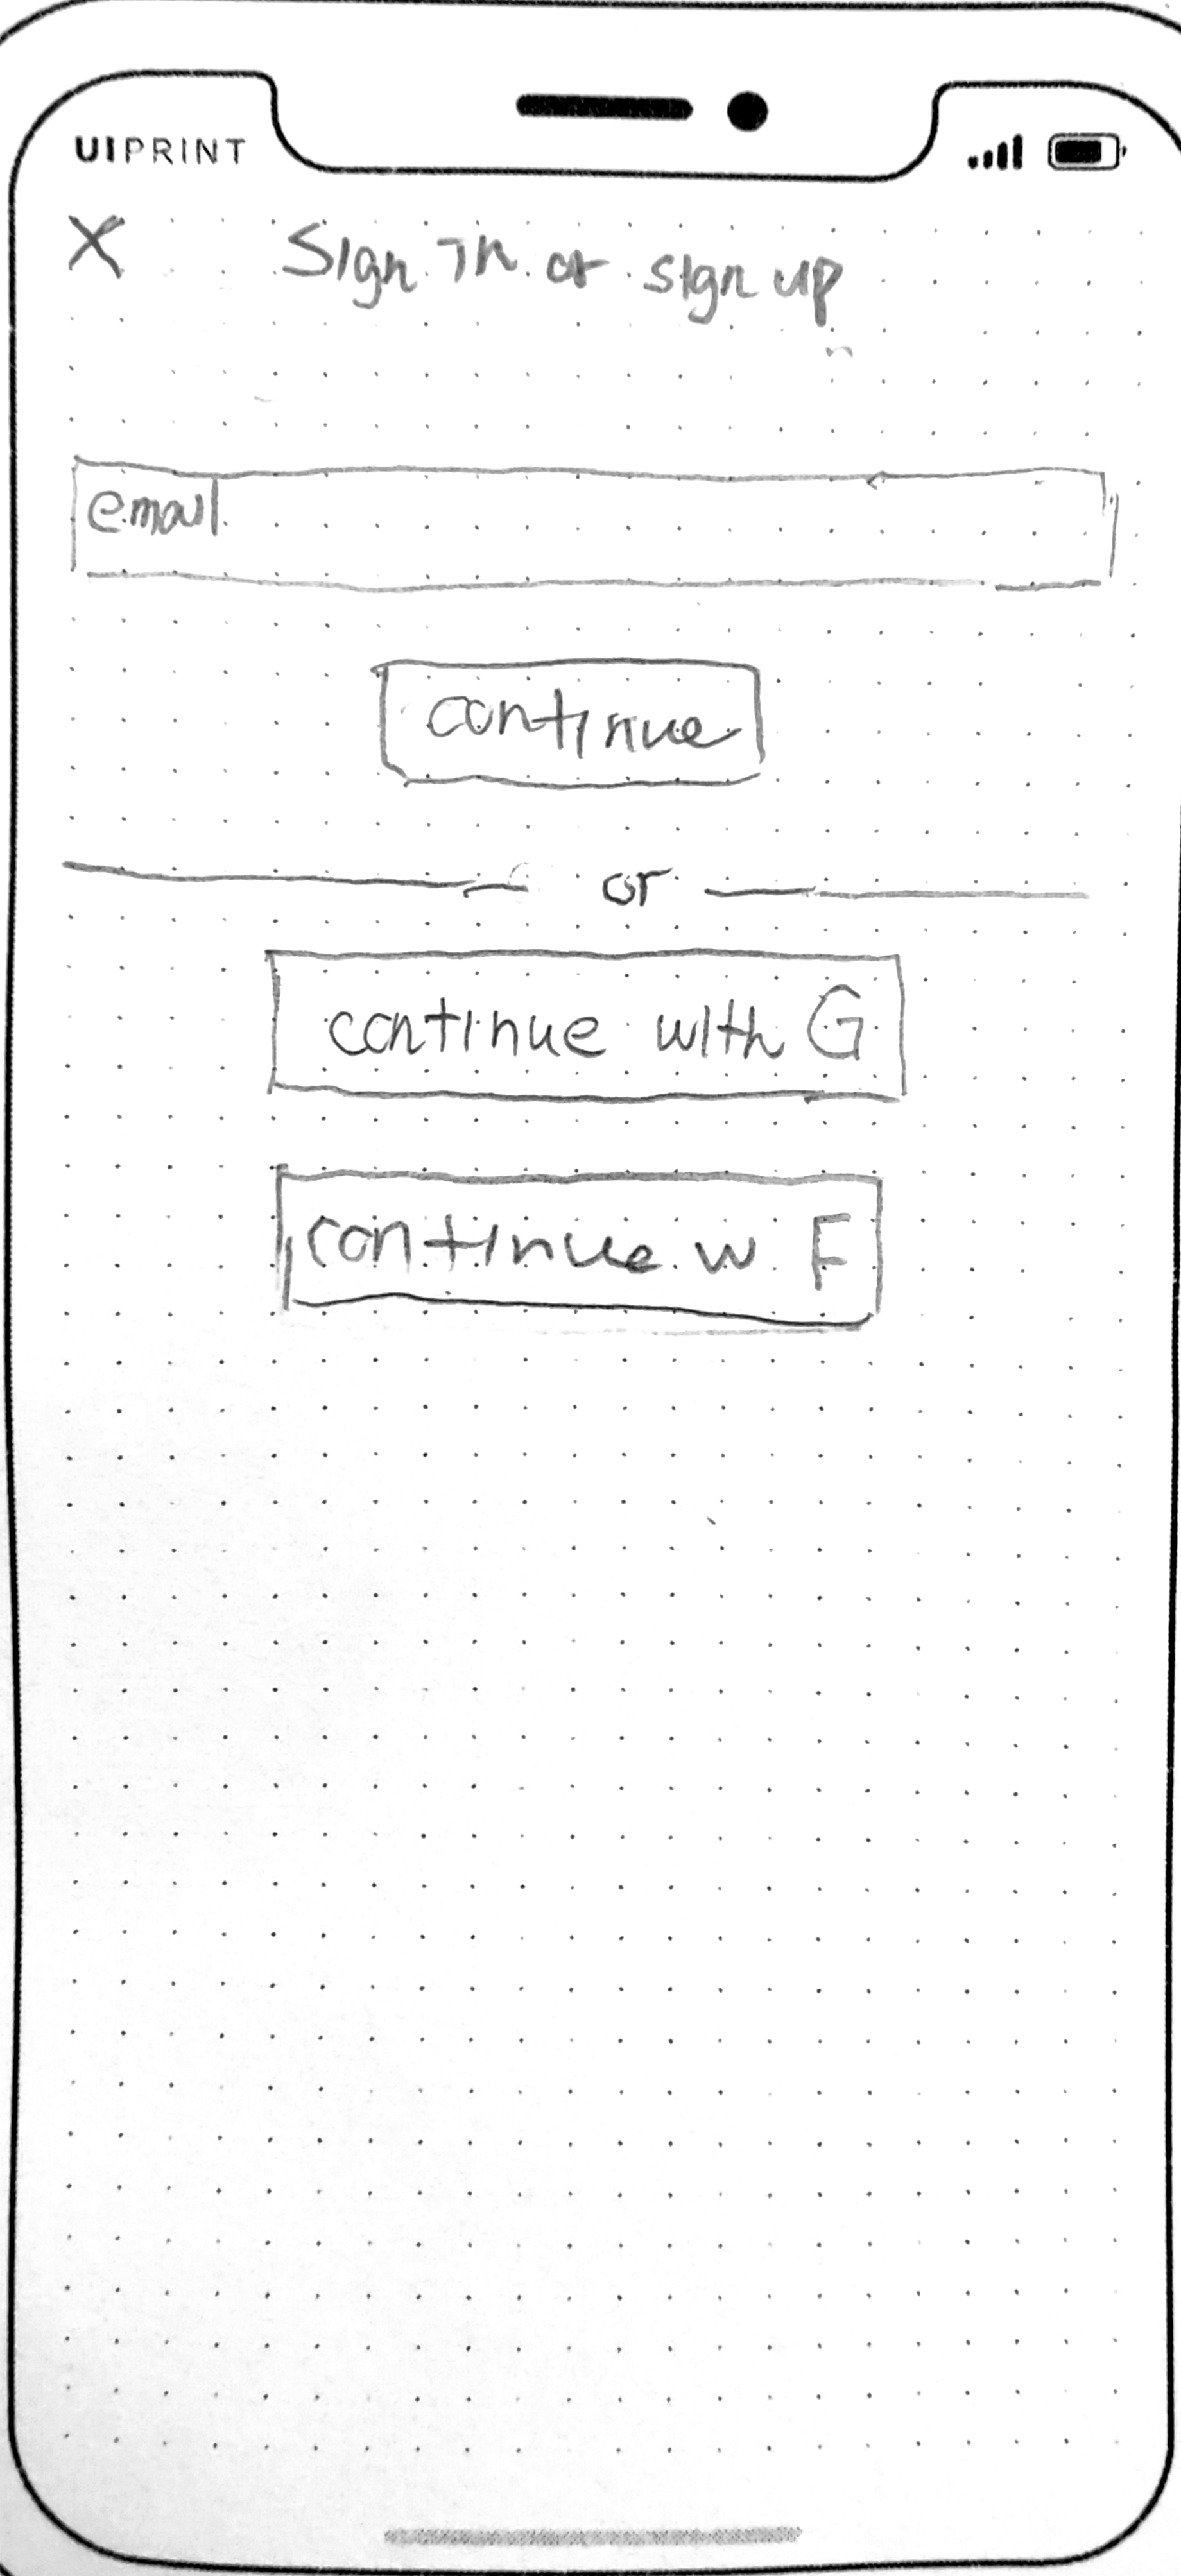 UIPRINT
X Sign in or sign up
email
continue
or
continue with G
continue w F